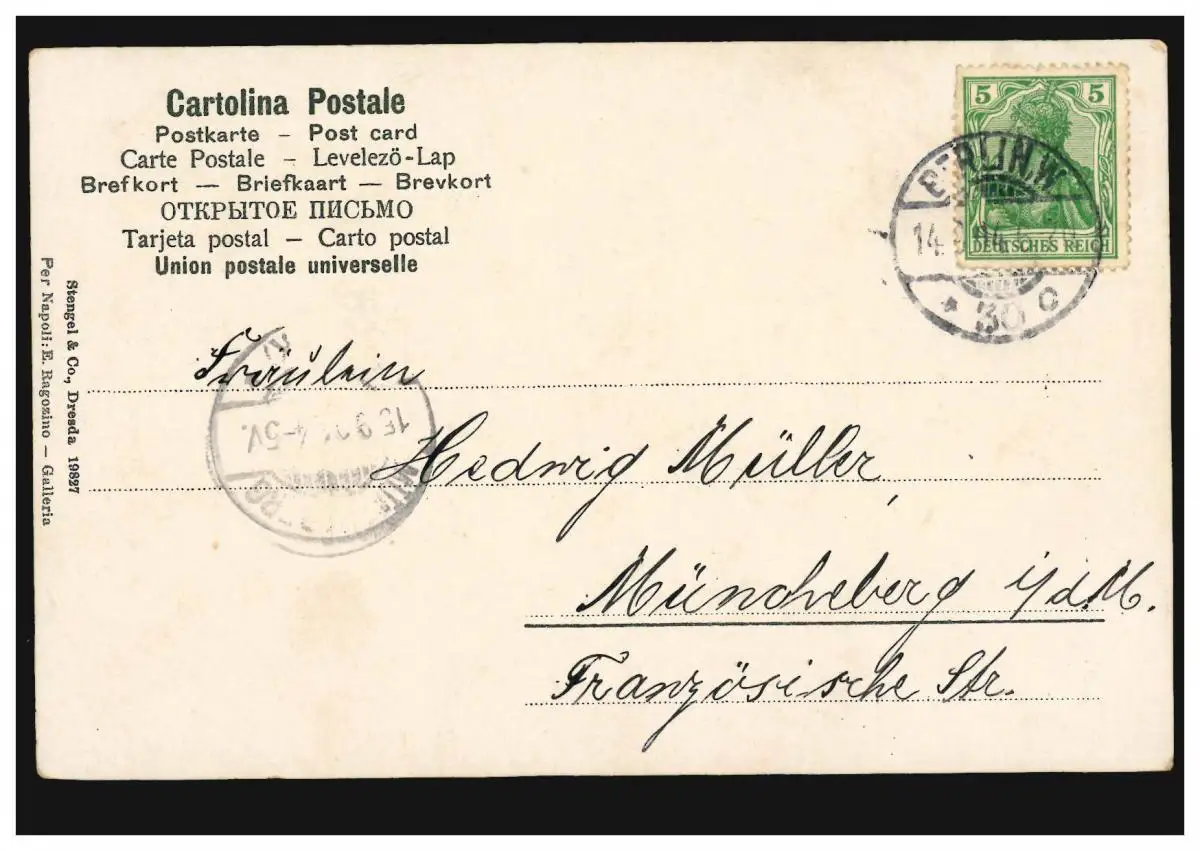 Cartolina Postale
Postkarte – Post card
Carte Postale – Levelező-Lap
Brefkort — Briefkaart — Brevkort
ОТКРЫТОЕ ПИСЬМО
Tarjeta postal – Carto postal
Union postale universelle
5 5
DEUTSCHES REICH
BERLIN.W.
30 c
Stengel & Co., Dresda 19827
Per Napoli: E. Ragozino – Galleria
4-5V.
Fräulein
Hedwig Müller,
Müncheberg i/d.M.
Französische Str.